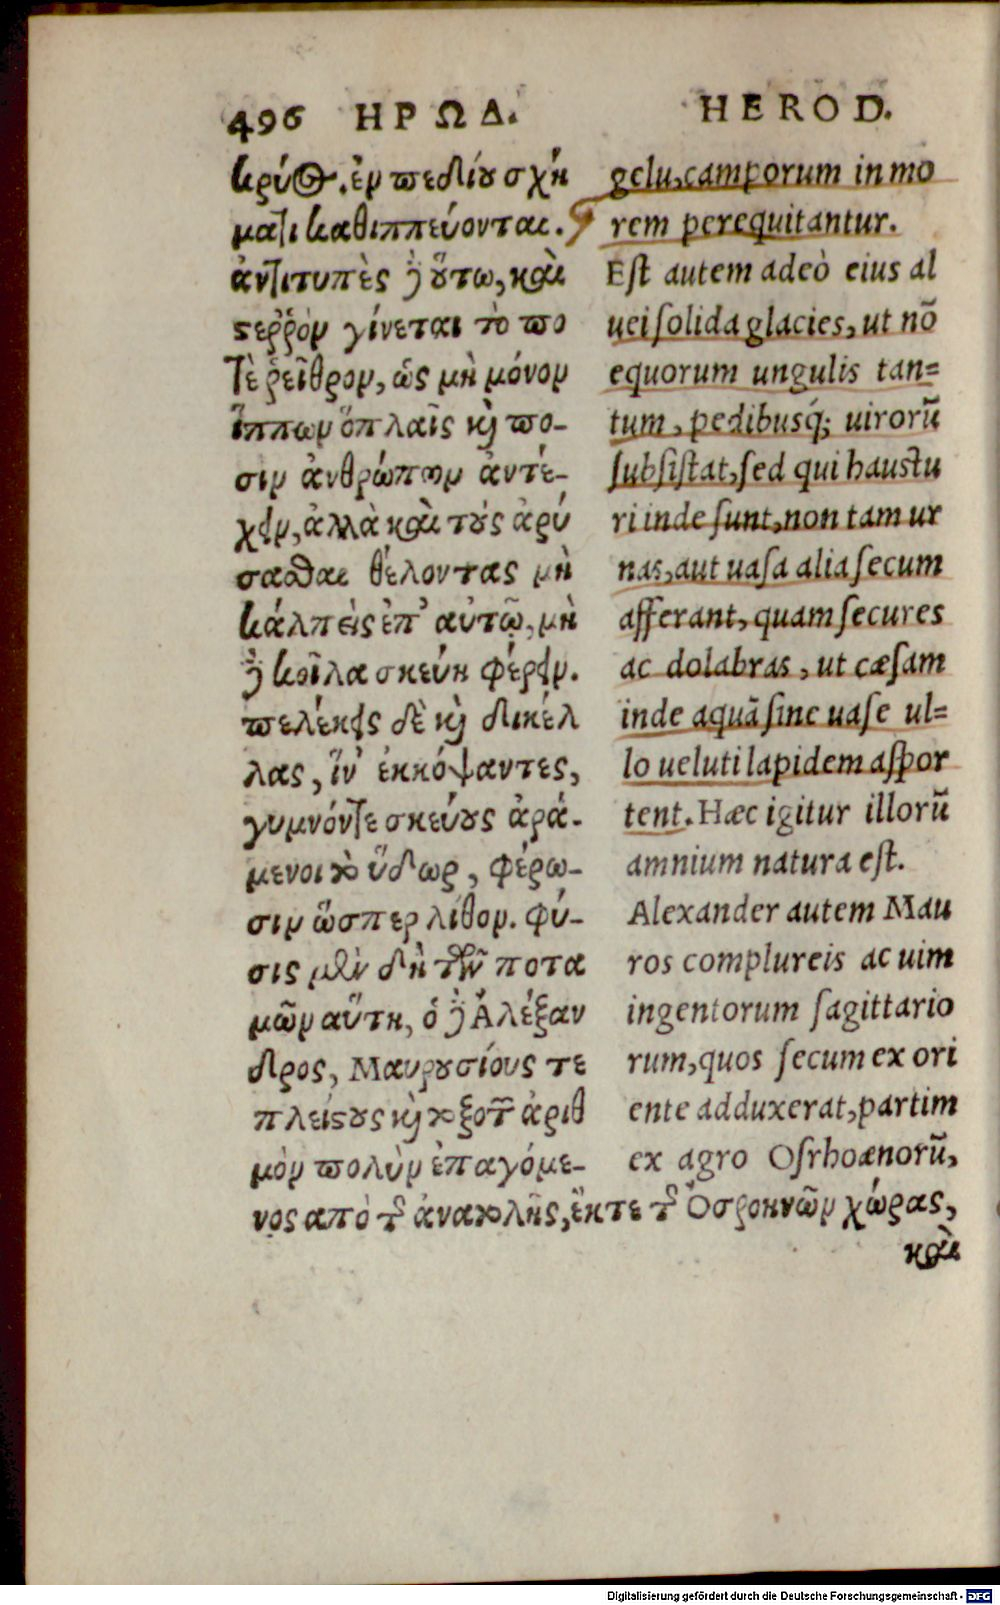 496 ΗΡΩΔ.
κρύος. ἐν πεδίου σχή
ματι καθιππεύονται.
ἀντιτυπὲς δὲ οὕτω, καὶ
στερρὸν γίνεται τὸ πο
τὲ ῥεῖθρον, ὡς μὴ μόνον
ἵππων ὁπλαῖς κὶ πο-
σιν ἀνθρώπων ἀντέ-
χειν, ἀλλὰ καὶ τοὺς ἀρύ
σασθαι θέλοντας μὴ
κάλπεις ἐπ' αὐτῷ, μὴ
δὲ κοῖλα σκεύη φέρειν.
πελέκεις δὲ κὶ δικέλ
λας, ἵν' ἐκκόψαντες,
γυμνόντε σκεύους ἀρά-
μενοι τὸ ὕδωρ, φέρω-
σιν ὥσπερ λίθον. φύ-
σις μὲν δὴ τῶν ποτα
μῶν αὕτη, ὁ δὲ Ἀλέξαν
δρος, Μαυρουσίους τε
πλείστους κὶ τοξοτῶν ἀριθ
μὸν πολὺν ἐπαγόμε-
νος ἀπὸ τῆς ἀνατολῆς, ἔκ τε τῆς Ὀσροηνῶν χώρας,
καὶ
HEROD.
gelu, camporum in mo
rem perequitantur.
Est autem adeò eius al
uei solida glacies, ut nō
equorum ungulis tan=
tum, pedibusq́; uirorū
subsistat, sed qui haustu
ri inde sunt, non tam ur
nas, aut uasa alia secum
afferant, quam secures
ac dolabras, ut cæsam
inde aquā sine uase ul=
lo ueluti lapidem aspor
tent. Hæc igitur illorū
amnium natura est.
Alexander autem Mau
ros complureis ac uim
ingentorum sagittario
rum, quos secum ex ori
ente adduxerat, partim
ex agro Osrhoænorū,
Digitalisierung gefördert durch die Deutsche Forschungsgemeinschaft - DFG